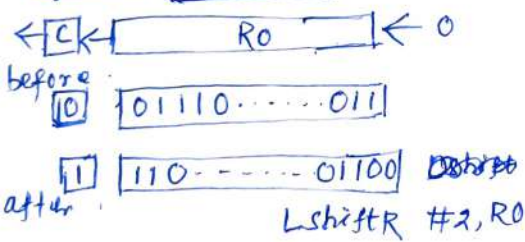 C R0 0
before
0 01110......011
1 110-......01100
after LshiftR #2, R0